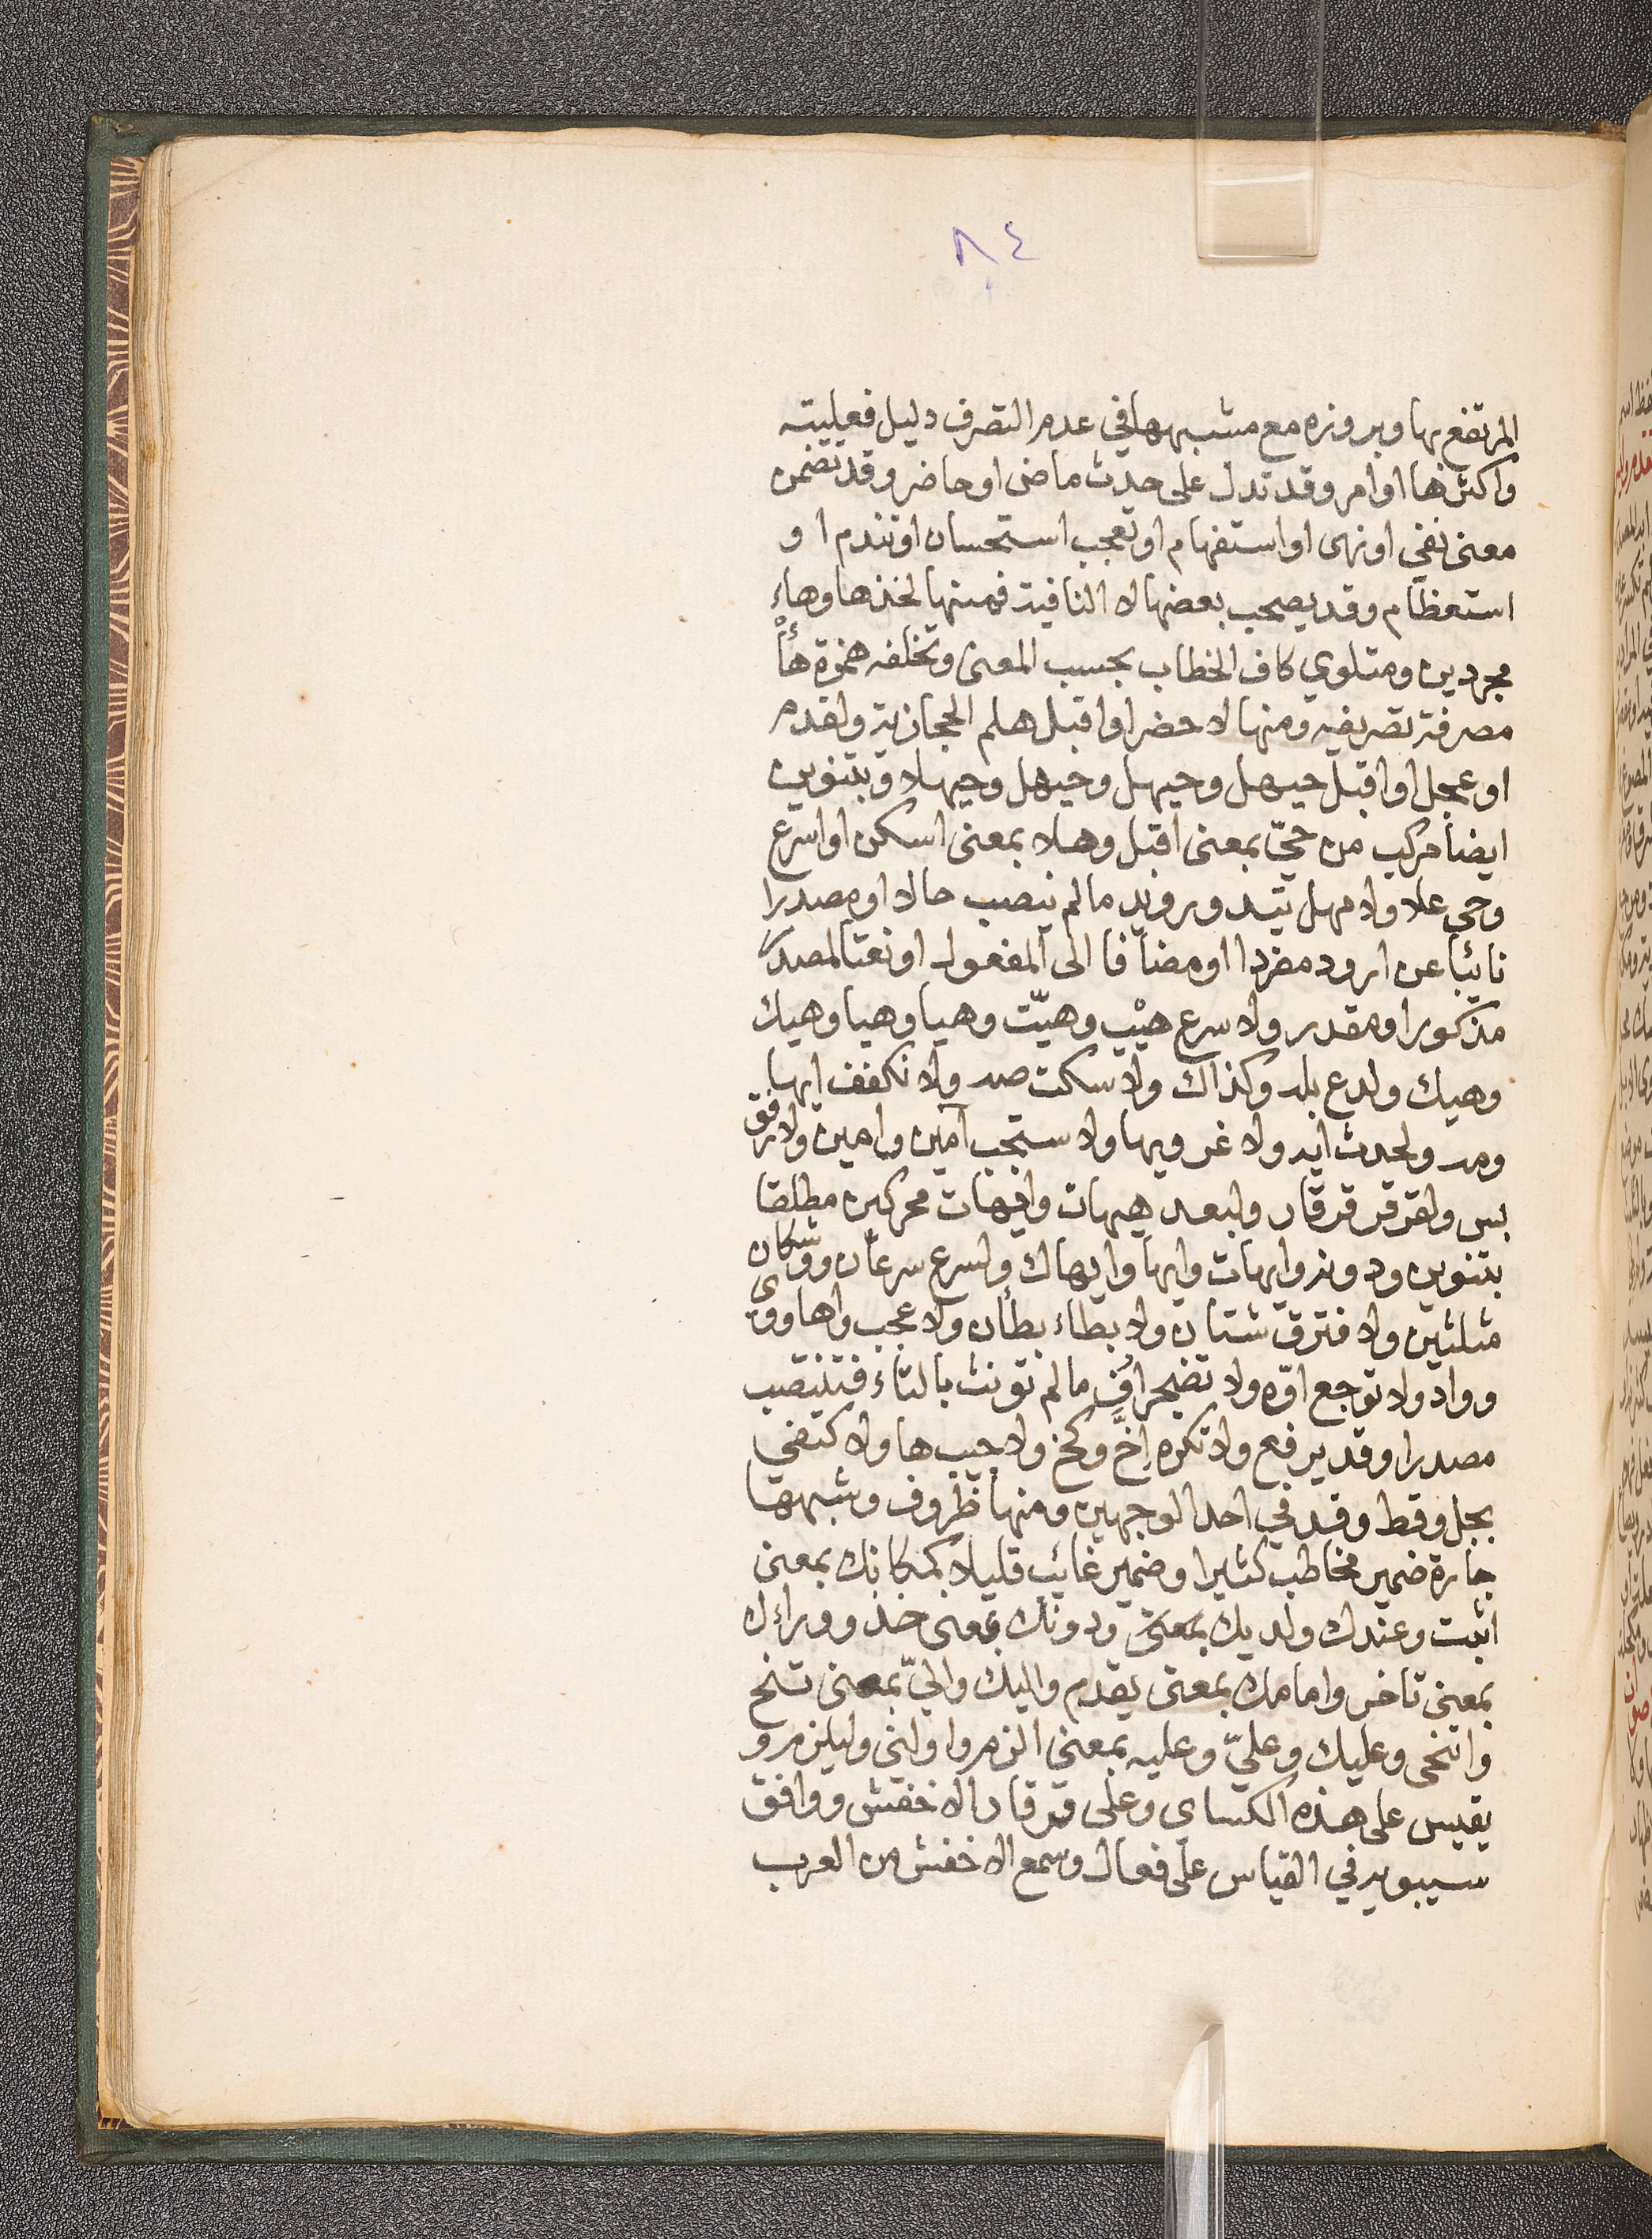 ٨٤
المرتفع بها وبروزه مع مشبهها في عدم التصرف دليل فعليته
واكثرها اوامر وقد تدل على حدث ماض او حاضر وقد تضمن
معنى نفي او نهى او استفهام او تعجب استحسان او تندم ا و
استعظام وقد يصحب بعضها لا النافية فمنها لخذها وهاء
مجردين ومتلوي كاف الخطاب بحسب المعنى وتخلفه همزة هأ
مصرفة تصريفه ومنها لاحضر او اقبل هلم الحجازية ولقدم
او عجل او اقبل حيهل وحيهل وحيهل وحيهلا وبتنوين
ايضا مركب من حيّ بمعنى اقبل وهلا بمعنى اسكن او اسرع
وحي علا ولامهل تيد ورويد ما لم ينصب حالا او مصدرا
نايبا عن ارود مفردا او مضافا الى المفعول او نعتا لمصدر
مذكورا ومقدر ولاسرع هيْت وهيّت وهيا وهيا وهيك
وهيك ولدع بله وكذاك ولاسكت صه ولانكفف ايها
ومه ولحدث ايه ولاغر ويها ولاستجب آمين وامين ولارفق
بس ولقرقر قرقار ولبعد هيهات وايهات محركين مطلقا
بتنوين ودونه وايهات وايها وايهاك ولسرع سرعان ووشكان
مثلثين ولافترق شتان ولابطاء بطأن ولاعجب واها ووى
وواه ولاتوجع اوّه ولاتضجر افّ ما لم تونث بالتاء فتنتصب
مصدرا وقد يرفع ولاتكره إخّ وكخ ولاجيب ها ولاكتفي
بجل وقط وقد في احد الوجهين ومنها ظروف وشبهها
جارة ضمير مخاطب كثيرا وضمير غائب قليلا كمكانك بمعنى
اثبت وعندك ولديك بمعنى ودونك بمعنى خذ ووراءك
بمعنى تاخر وامامك بمعنى تقدم واليك واليّ بمعنى تنح
واتنحى وعليك وعليّ وعليه بمعنى الزم واولنى وليلزم و
يقيس على هذه الكساى وعلى قرقار الاخفش ووافق
سيبويه في القياس على فعال وسمع الاخفش من العرب